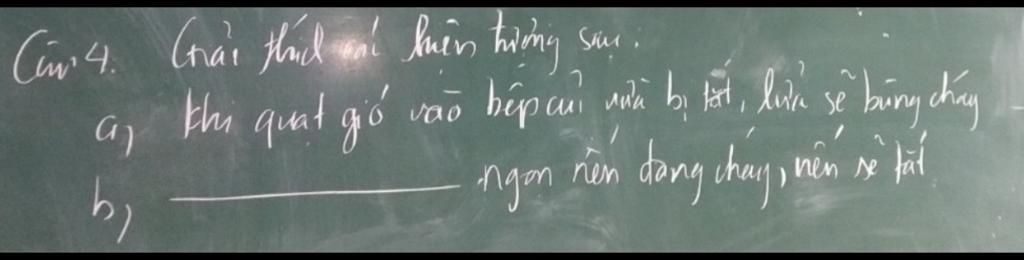 Câu 4. Giải thích các hiện tượng sau:
a) Khi quạt gió vào bếp củi vừa bị tắt, lửa sẽ bùng cháy
b) ____________ ngọn nến đang cháy, nến sẽ tắt